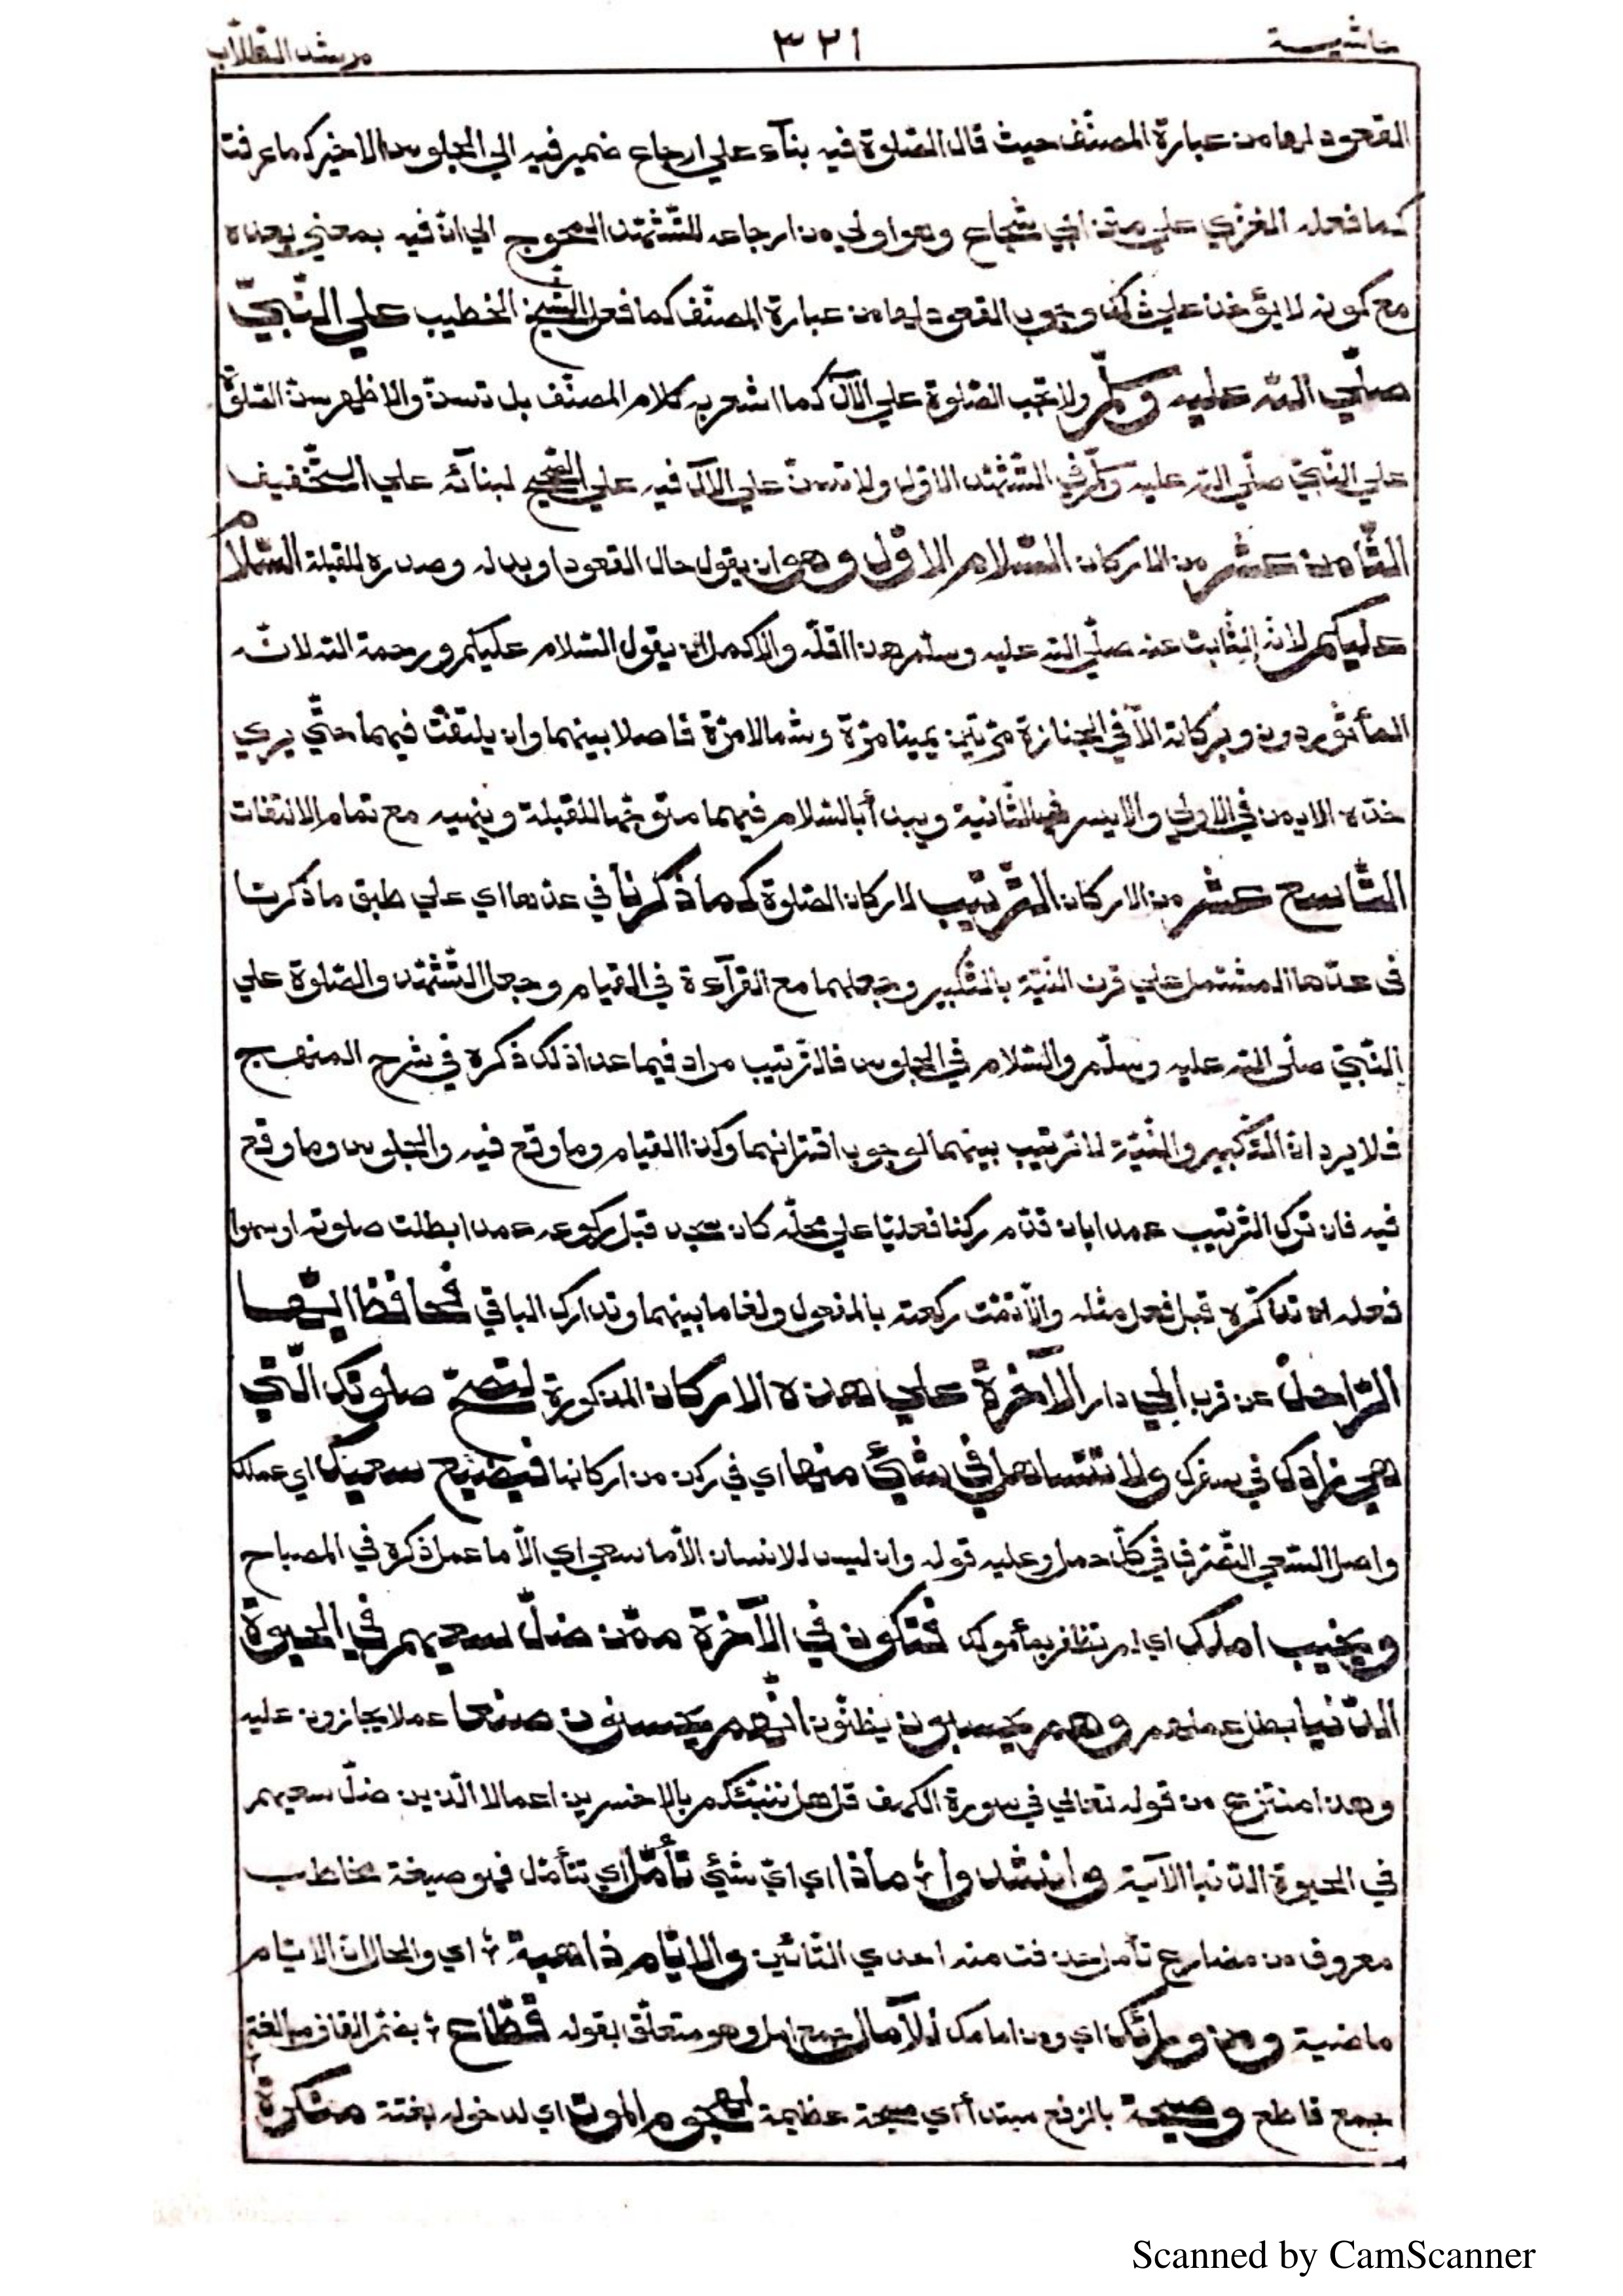 حاشية ٣٢١ مرشد الطلاب
القعود لها من عبارة المصنّف حيث قال الصّلوة فيه بنآء علي ارجاع ضمير فيه الي الجلوس الاخير كما عرفت
كما فعله الغزي علي متن ابي شجاع وهو اولي من ارجاعه للتّشهّد المحوج الي انّ فيه بمعني بعده
مع كونه لا يؤخذ علي ذلك وجوب القعود لها من عبارة المصنّف كما فعل الشيخ الخطيب علي النّبيّ
صلّي الله عليه وسلّم ولا تجب الصّلوة علي الآل كما اشعر به كلام المصنّف بل تسنّ والاظهر سنّ الصّلوة
علي النّبيّ صلّي الله عليه وسلّم في التّشهّد الاوّل ولا تسنّ علي الآل فيه علي الصّحيح لبنآئه علي التّخفيف
الثّامن عشر من الاركان السّلام الاوّل وهو ان يقول حال القعود او بدله وصدره للقبلة السّلام
عليكم لانّه الثّابت عنه صلّي الله عليه وسلّم هذا اقلّه والاكمل ان يقول السّلام عليكم ورحمة الله لانّه
المأثور دون وبركاته الّا في الجنازة مرّتين يمينا مرّة وشمالا مرّة فاصلا بينهما وان يلتفت فيهما حتّي يري
خدّه الايمن في الاولي والايسر في الثّانية ويبدأ بالسّلام فيهما متوجّها للقبلة وينهيه مع تمام الالتفات
التّاسع عشر من الاركان التّرتيب لاركان الصّلوة كما ذكرنا في عدّها اي علي طبق ما ذكرنا
في عدّها المشتمل علي قرن النّيّة بالتّكبير وجعلهما مع القرآءة في القيام وجعل التّشهّد والصّلوة علي
النّبيّ صلّي الله عليه وسلّم والسّلام في الجلوس فالتّرتيب مراد فيما عدا ذلك ذكره في شرح المنهج
فلا يرد انّ التّكبير والنّيّة لا ترتيب بينهما لوجوب اقترانهما وكذا القيام وما وقع فيه والجلوس وما وقع
فيه فان ترك التّرتيب عمدا بان قدّم ركنا فعليّا علي محلّه كان سجد قبل ركوعه عمدا بطلت صلوته او سهوا
فعله ان تذكّره قبل فعل مثله والّا تمّت ركعته بالمفعول ولغا ما بينهما وتدارك الباقي فحافظ ايّها
الرّاحل عن قرب الي دار الآخرة علي هذه الاركان المذكورة لتصحّ صلوتك الّتي
هي زادك في سفرك ولا تتساهل في شيئ منها اي في ركن من اركانها فيضيع سعيك اي عملك
واصل السّعي التّصرّف في كلّ عمل وعليه قوله وان ليس للانسان الّا ما سعي اي الّا ما عمل ذكره في المصباح
ويخيب املك اي لم تظفر بمأمولك فتكون في الآخرة ممّن ضلّ سعيهم في الحيوة
الدّنيا بطل عملهم وهم يحسبون يظنّون انّهم يحسنون صنعا عملا يجازون عليه
وهذا منتزع من قوله تعالي في سورة الكهف قل هل ننبّئكم بالاخسرين اعمالا الّذين ضلّ سعيهم
في الحيوة الدّنيا الآية وانشدوا ماذا اي ايّ شيئ تأمّل اي تتأمّل فهو صيغة مخاطب
معروف من مضارع تأمل حذفت منه احدي التّائين والايّام ذاهبة اي والحال انّ الايّام
ماضية ومن ورائك اي ومن امامك للآمال جمع امل وهو متعلّق بقوله قطّاع بضمّ القاف
جمع قاطع وصيحة بالرّفع مبتدأ اي صيحة عظيمة لهجوم الموت اي لدخوله بغتة منكرة
Scanned by CamScanner